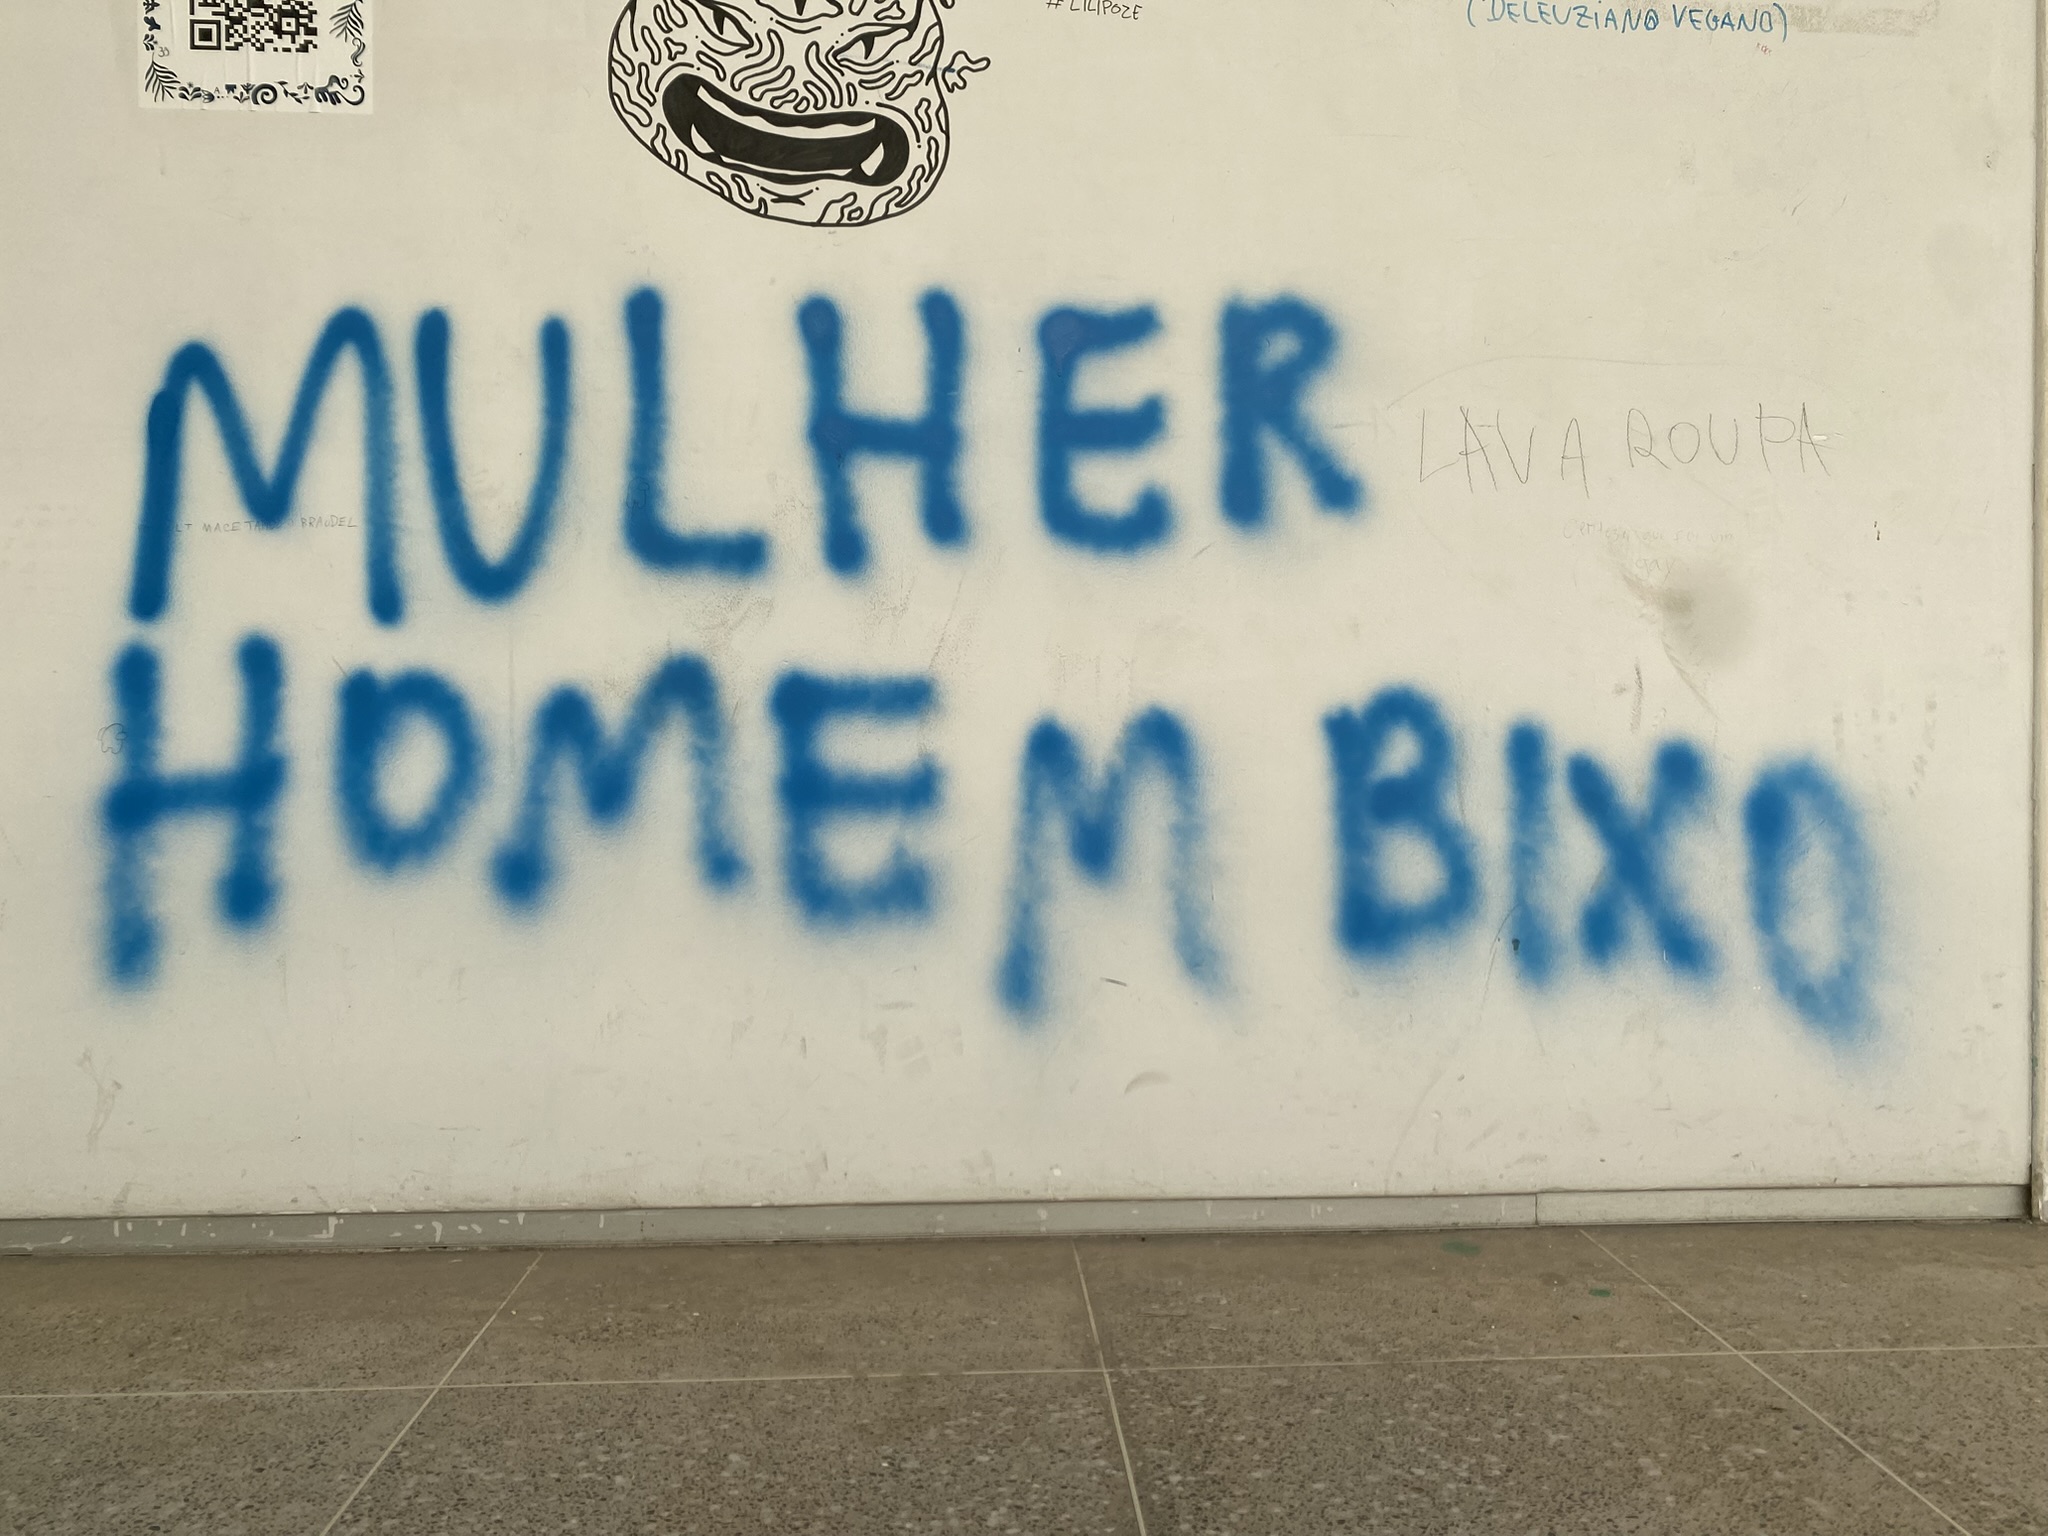 #LILIPOZE
(DELEUZIANO VEGANO)
MULHER
LAVA ROUPA
BRAUDEL
HOMEM BIXO